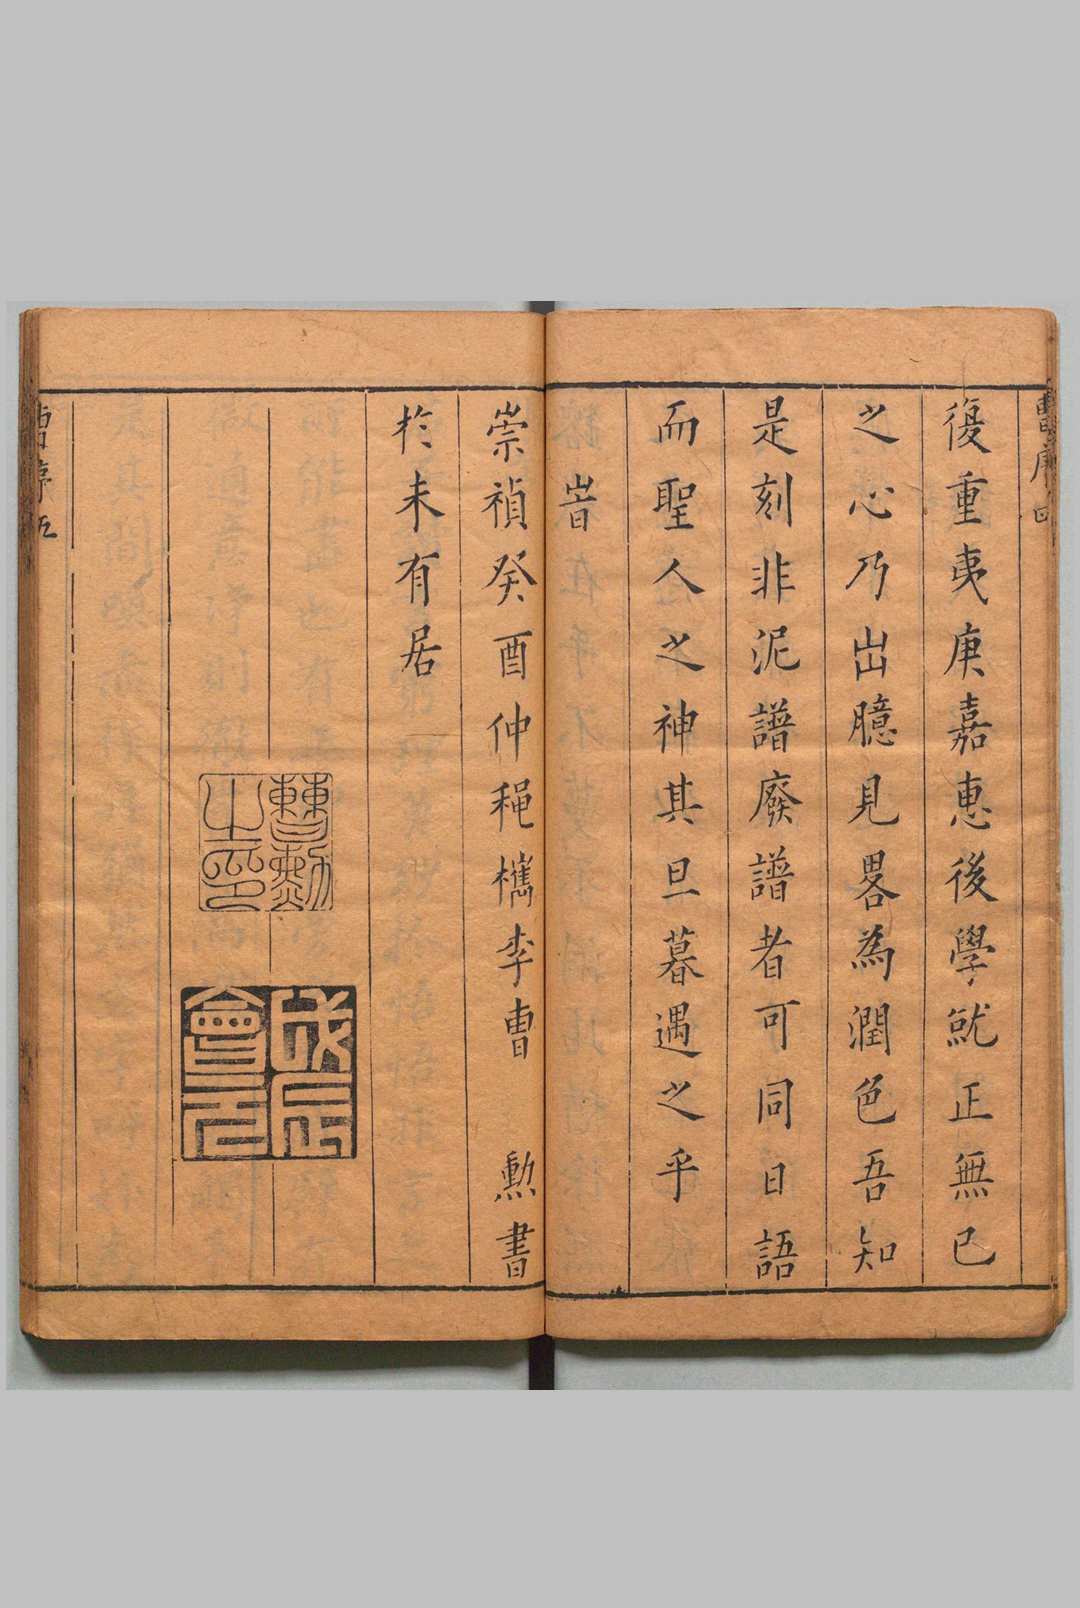 曹序 四
復重夷庚嘉惠後學就正無已
之心乃出臆見畧為潤色吾知
是刻非泥譜廢譜者可同日語
而聖人之神其旦暮遇之乎
旹
崇禎癸酉仲穐檇李曹 勲書
於未有居
曹勲之印
戊辰會元
曹序 五